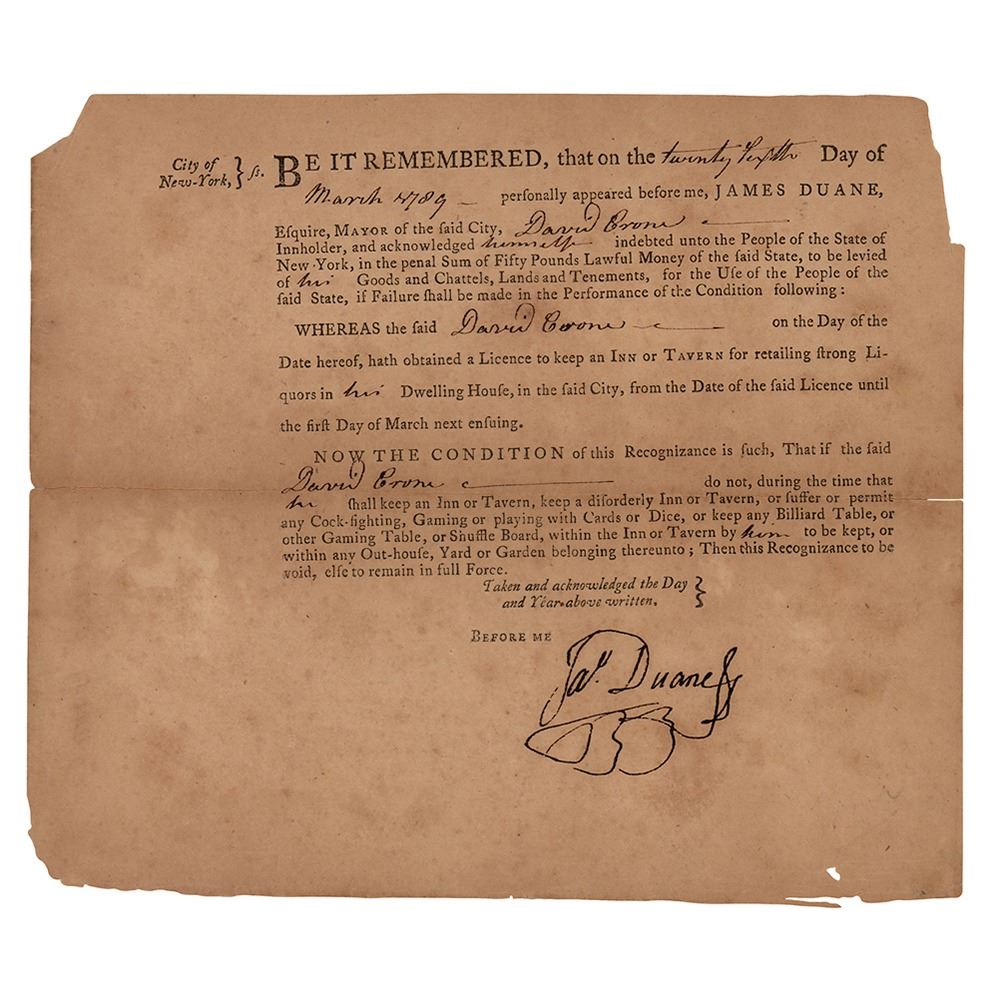 City of
New-York, } ſs.
BE IT REMEMBERED, that on the twenty Sixth Day of
March 1789 personally appeared before me, JAMES DUANE,
Eſquire, MAYOR of the ſaid City, David Crone
Innholder, and acknowledged himself indebted unto the People of the State of
New-York, in the penal Sum of Fifty Pounds Lawful Money of the ſaid State, to be levied
of his Goods and Chattels, Lands and Tenements, for the Uſe of the People of the
ſaid State, if Failure ſhall be made in the Performance of the Condition following:
WHEREAS the ſaid David Crone on the Day of the
Date hereof, hath obtained a Licence to keep an INN or TAVERN for retailing ſtrong Li-
quors in his Dwelling Houſe, in the ſaid City, from the Date of the ſaid Licence until
the firſt Day of March next enſuing.
NOW THE CONDITION of this Recognizance is ſuch, That if the ſaid
David Crone do not, during the time that
he ſhall keep an Inn or Tavern, keep a diſorderly Inn or Tavern, or ſuffer or permit
any Cock-fighting, Gaming or playing with Cards or Dice, or keep any Billiard Table, or
other Gaming Table, or Shuffle Board, within the Inn or Tavern by him to be kept, or
within any Out-houſe, Yard or Garden belonging thereunto; Then this Recognizance to be
void, elſe to remain in full Force.
Taken and acknowledged the Day
and Year above written. }
BEFORE ME
Jas. Duane